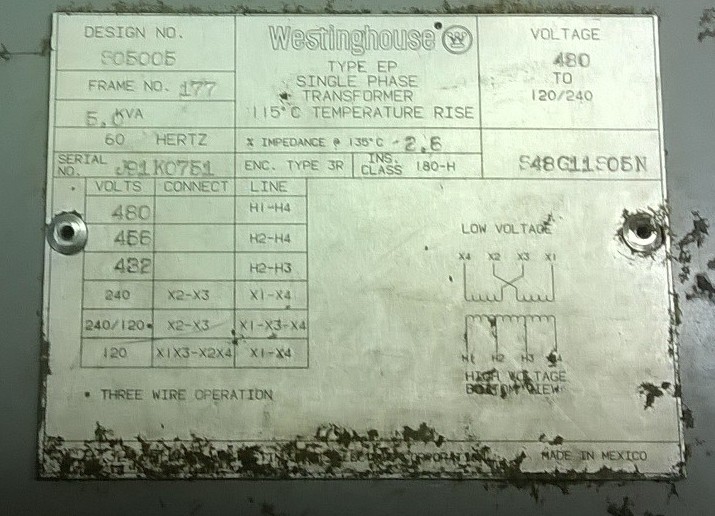 DESIGN NO.
S05005
FRAME NO. 177
5.0 KVA
60 HERTZ
SERIAL NO. J91K0751
Westinghouse W
TYPE EP
SINGLE PHASE
TRANSFORMER
115°C TEMPERATURE RISE
% IMPEDANCE @ 135°C - 2.6
ENC. TYPE 3R
INS. CLASS 180-H
VOLTAGE
480
TO
120/240
S48G11S05N
VOLTS CONNECT LINE
480 H1-H4
456 H2-H4
432 H2-H3
240 X2-X3 X1-X4
240/120• X2-X3 X1-X3-X4
120 X1X3-X2X4 X1-X4
• THREE WIRE OPERATION
LOW VOLTAGE
X4 X2 X3 X1
H1 H2 H3
HIGH VOLTAGE
BOTTOM VIEW
CORPORATION
MADE IN MEXICO